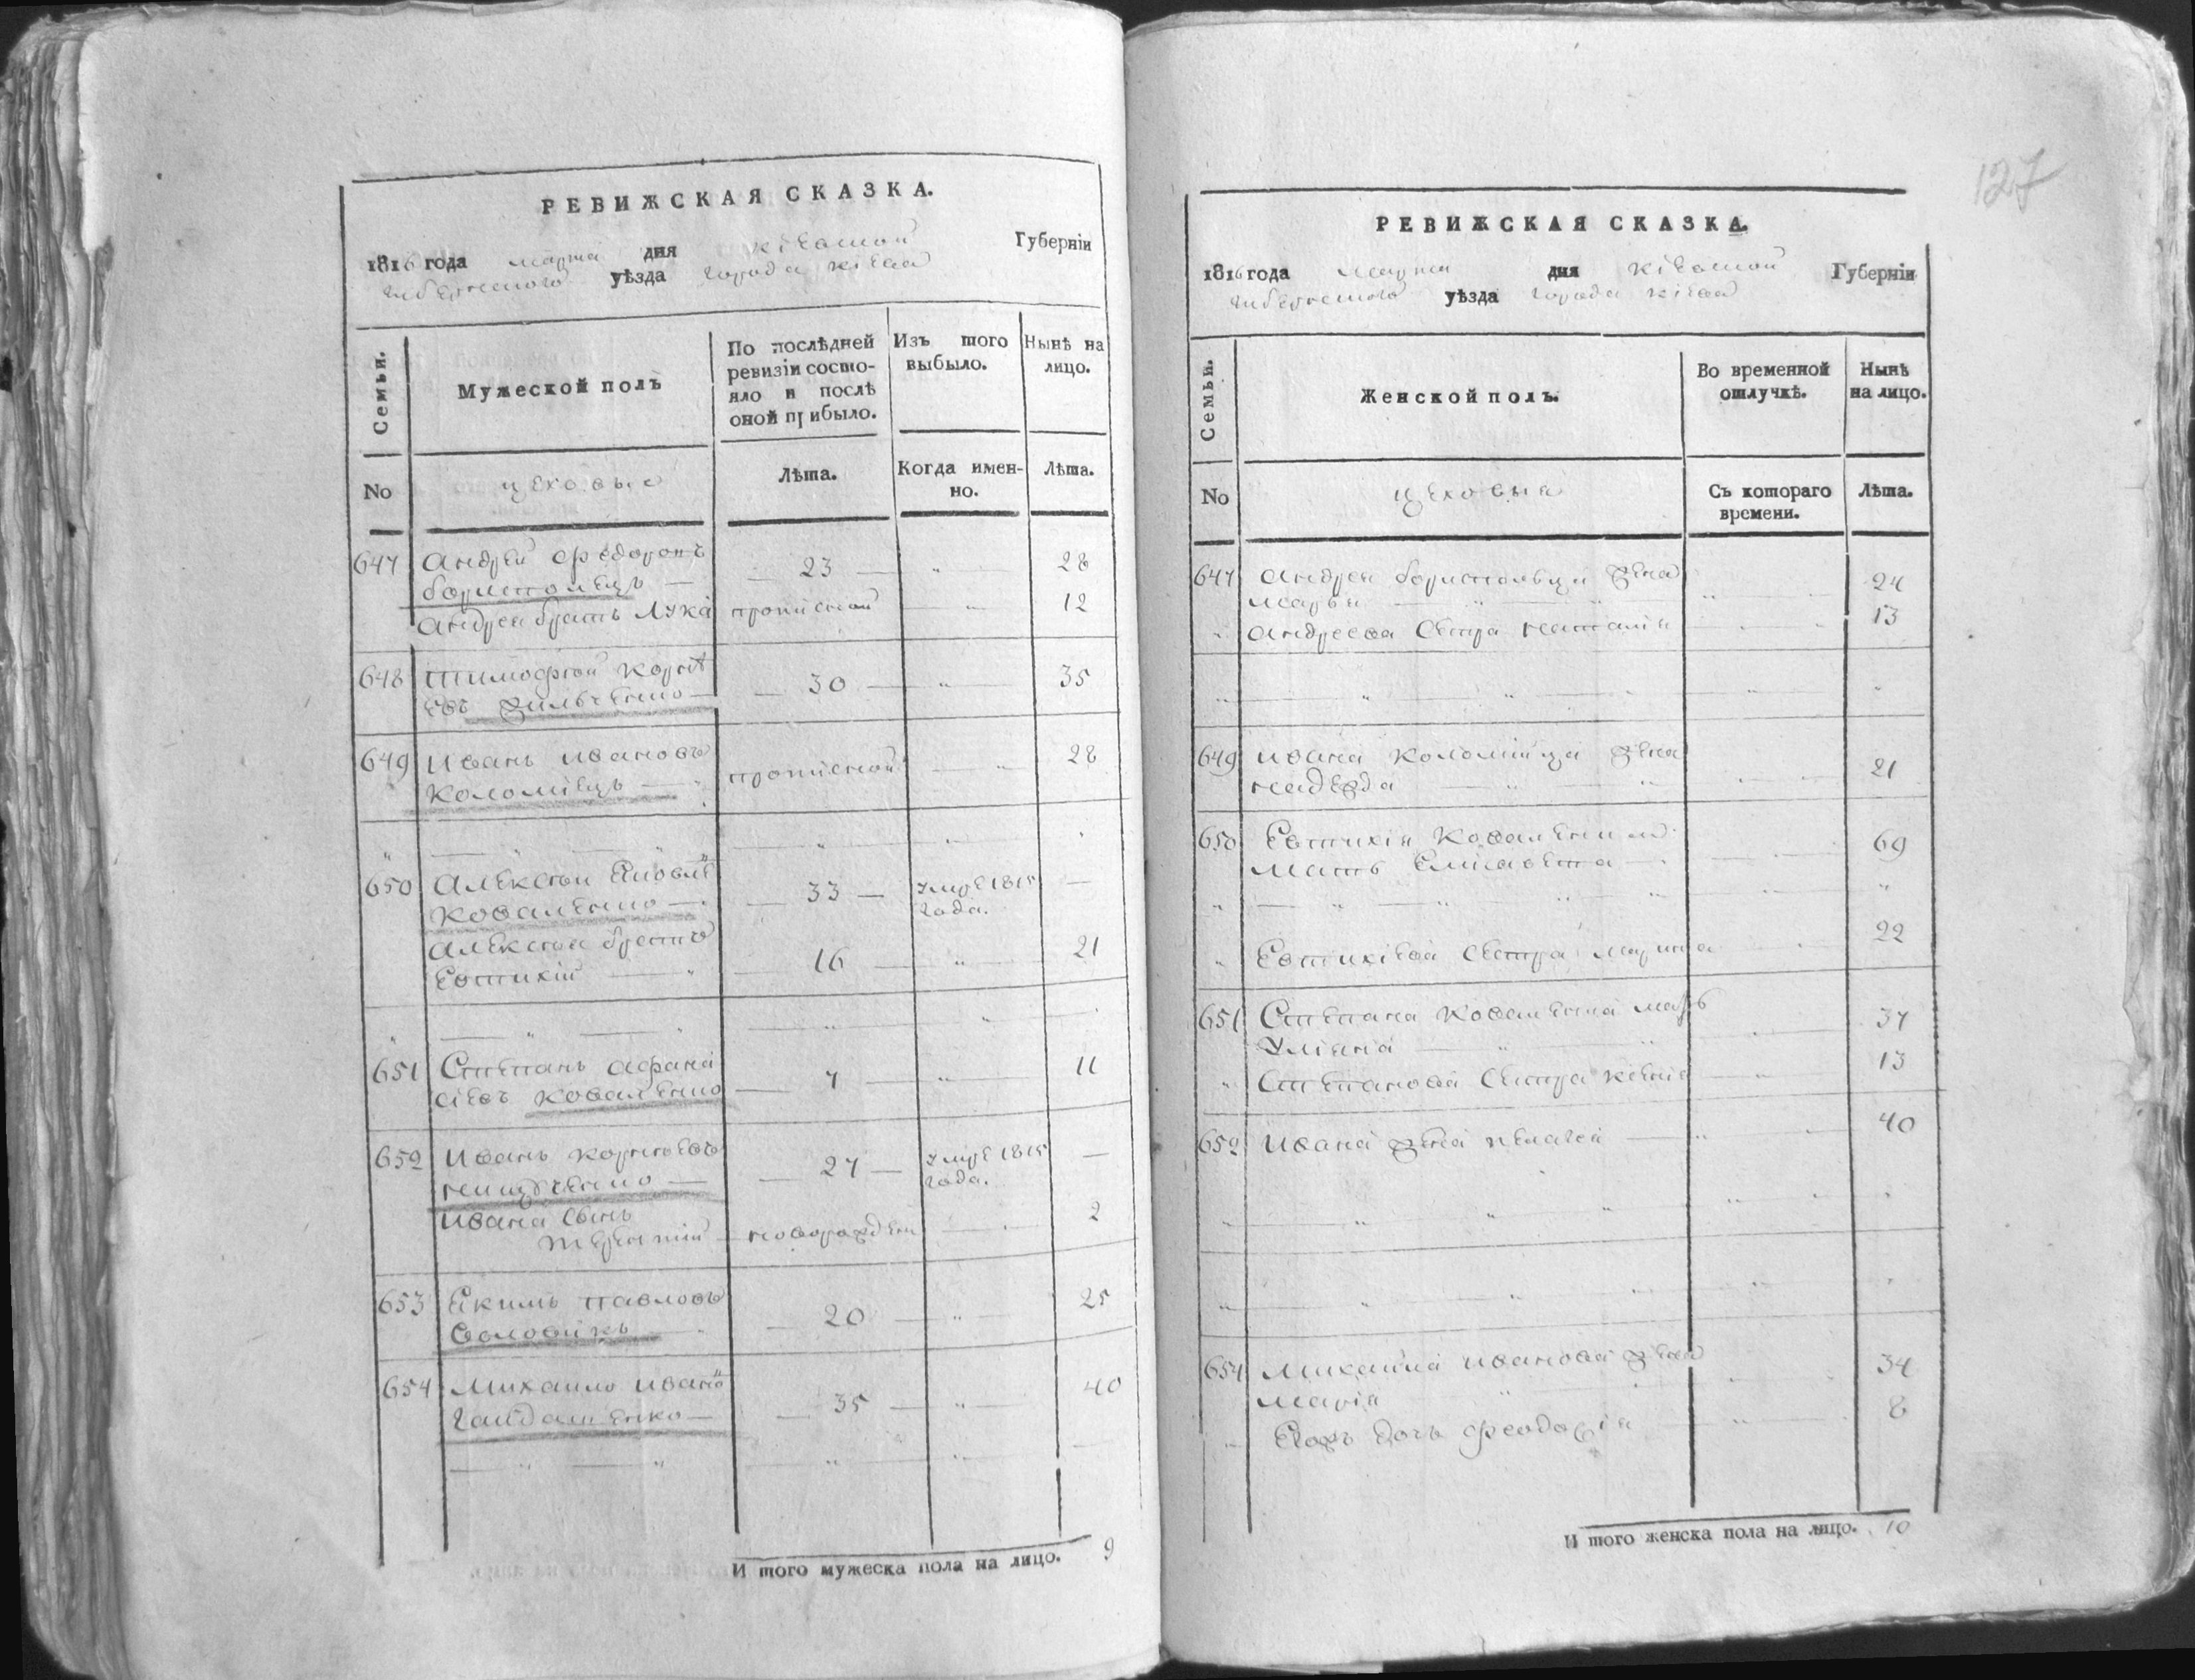 РЕВИЖСКАЯ СКАЗКА.
1816 года марта дня Кіевской Губерніи
уѣзда города Кіева
Семьи. Мужеской полъ По послѣдней ревизіи состояло и послѣ оной прибыло. Изъ того выбыло. Нынѣ на лицо.
No цеховые Лѣта. Когда именно. Лѣта.
647 Андрей Федоровъ
борисполецъ — 23 — " 28
Андрея братъ Лука прописной " 12
648 Тимофей Корнѣ
евъ Зильченко — 30 — " 35
649 Иванъ Ивановъ
Коломіецъ — прописной " 28
650 Алексѣй Яковлѣ
Коваленко — 33 — умре 1815 года. —
Алексѣя братъ
Евтихій — 16 — " 21
651 Степанъ Афана
сіевъ Коваленко — 7 — " 11
652 Иванъ Корнѣевъ
— 27 — умре 1815 года. —
Ивана сынъ
Терентій новорожден 2
653 Якимъ Павловъ
— 20 — " 25
654 Михайло Ивано
Гайдашенко — 35 — " 40
И того мужеска пола на лицо. 9
127
РЕВИЖСКАЯ СКАЗКА.
1816 года марта дня Кіевской Губерніи
уѣзда города Кіева
Семьи. Женской полъ. Во временной отлучкѣ. Нынѣ на лицо.
No цеховые Съ котораго времени. Лѣта.
647 Андрея бориспольца жена
Марья 24
" Андреева сестра Наталія 13
649 Ивана Коломійца жена
Надежда 21
650 Евтихія Коваленка
мать Елисавета 69
" Евтихіева сестра Марина 22
651 Степана Коваленка мать
Уліяна 37
" Степанова сестра Ксенія 13
652 Ивана жена Пелагея 40
654 Михайла Иванова жена
Марія 34
Ихъ дочь Феодосія 8
И того женска пола на лицо. 10